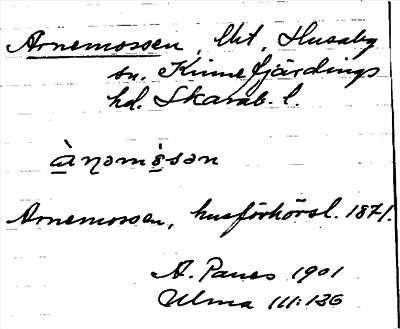 Arnemossen, lht, Husaby
sn. Kinnefjärdings
hd. Skarab. l.
àṇəmòsən
Arnemossen, husförhörsl. 1871.
A. Panes 1901
Ulma 111:136